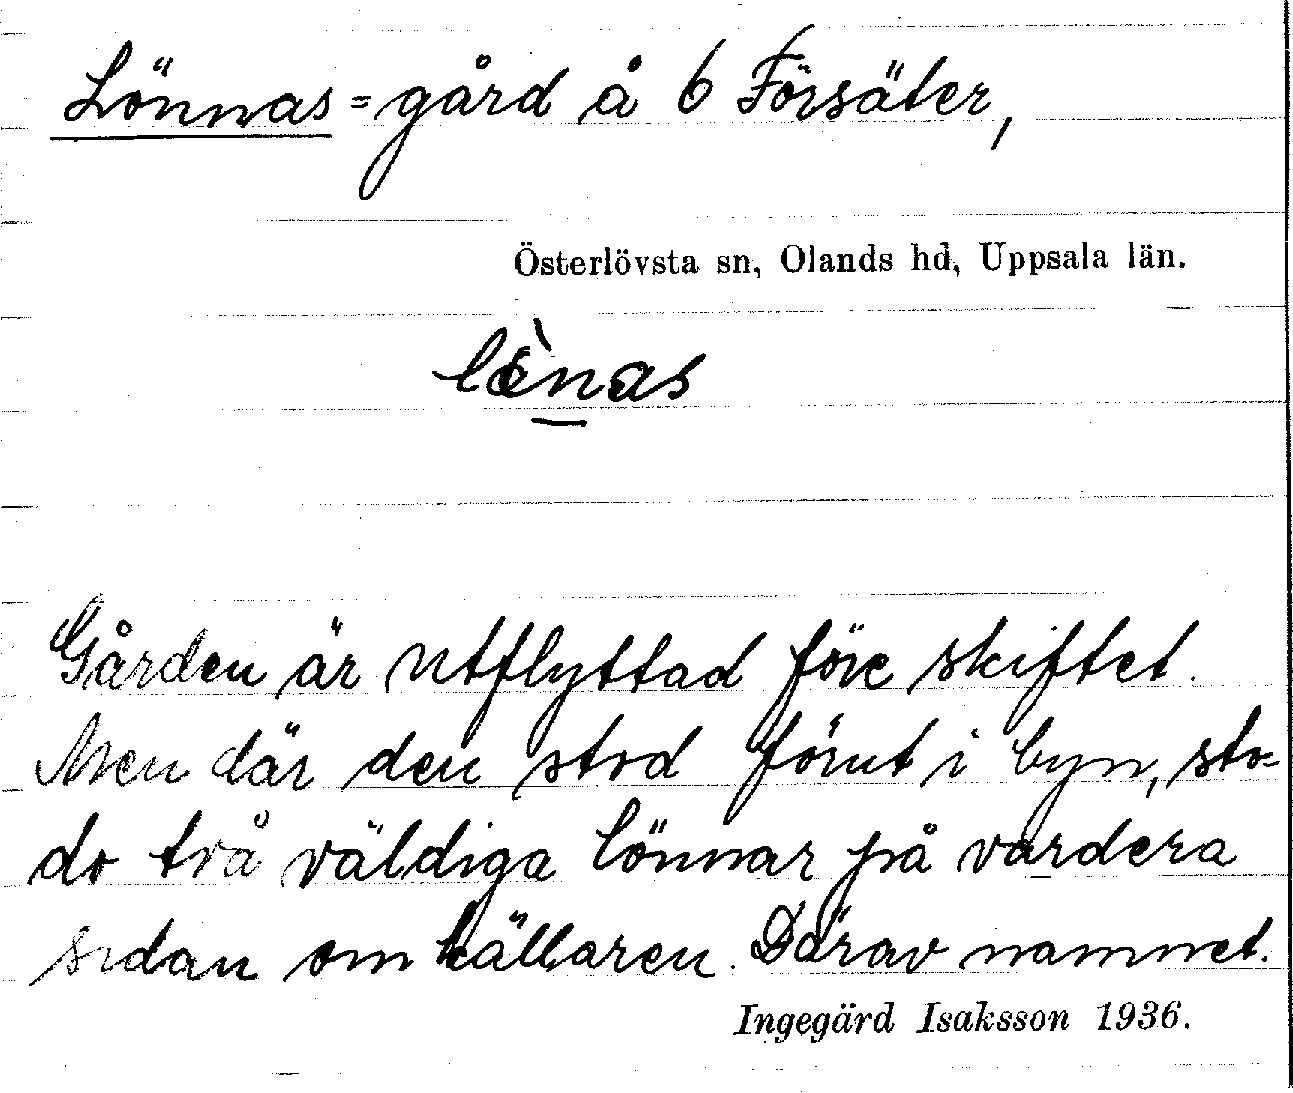 Lönnas = gård å 6 Försäter,
Österlövsta sn, Olands hd, Uppsala län.
Gården är utflyttad före skiftet.
Men där den stod förut i byn, sto-
do två väldiga lönnar på vardera
sidan om källaren. Därav namnet.
Ingegärd Isaksson 1936.